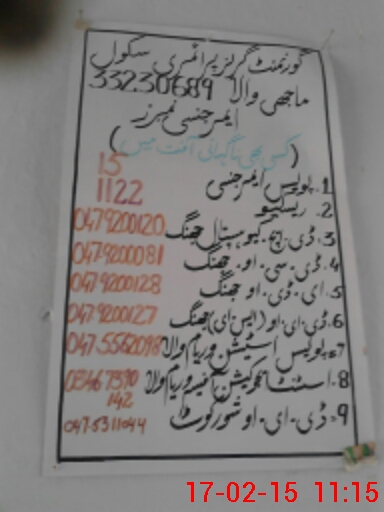 گورنمنٹ گرلز پرائمری سکول
ماجھی والا 33230689
ایمرجنسی نمبرز
(کسی بھی ناگہانی آفت میں)
1. پولیس ایمرجنسی 15
2. ریسکیو 1122
3. ڈی.ایچ.کیو ہسپتال جھنگ 047-9200120
4. ڈی.سی.او. جھنگ 047-9200081
5. ای.ڈی.او جھنگ 047-9200128
6. ڈی.ای.او (ایس.ای) جھنگ 047-9200127
7= پولیس اسٹیشن وریام والا 047-5562098
8. اسسٹنٹ ایجوکیشن آفیسر وریام والا 03467390
142
9= ڈی.ای.او شورکوٹ 047-5311044
17-02-15 11:15